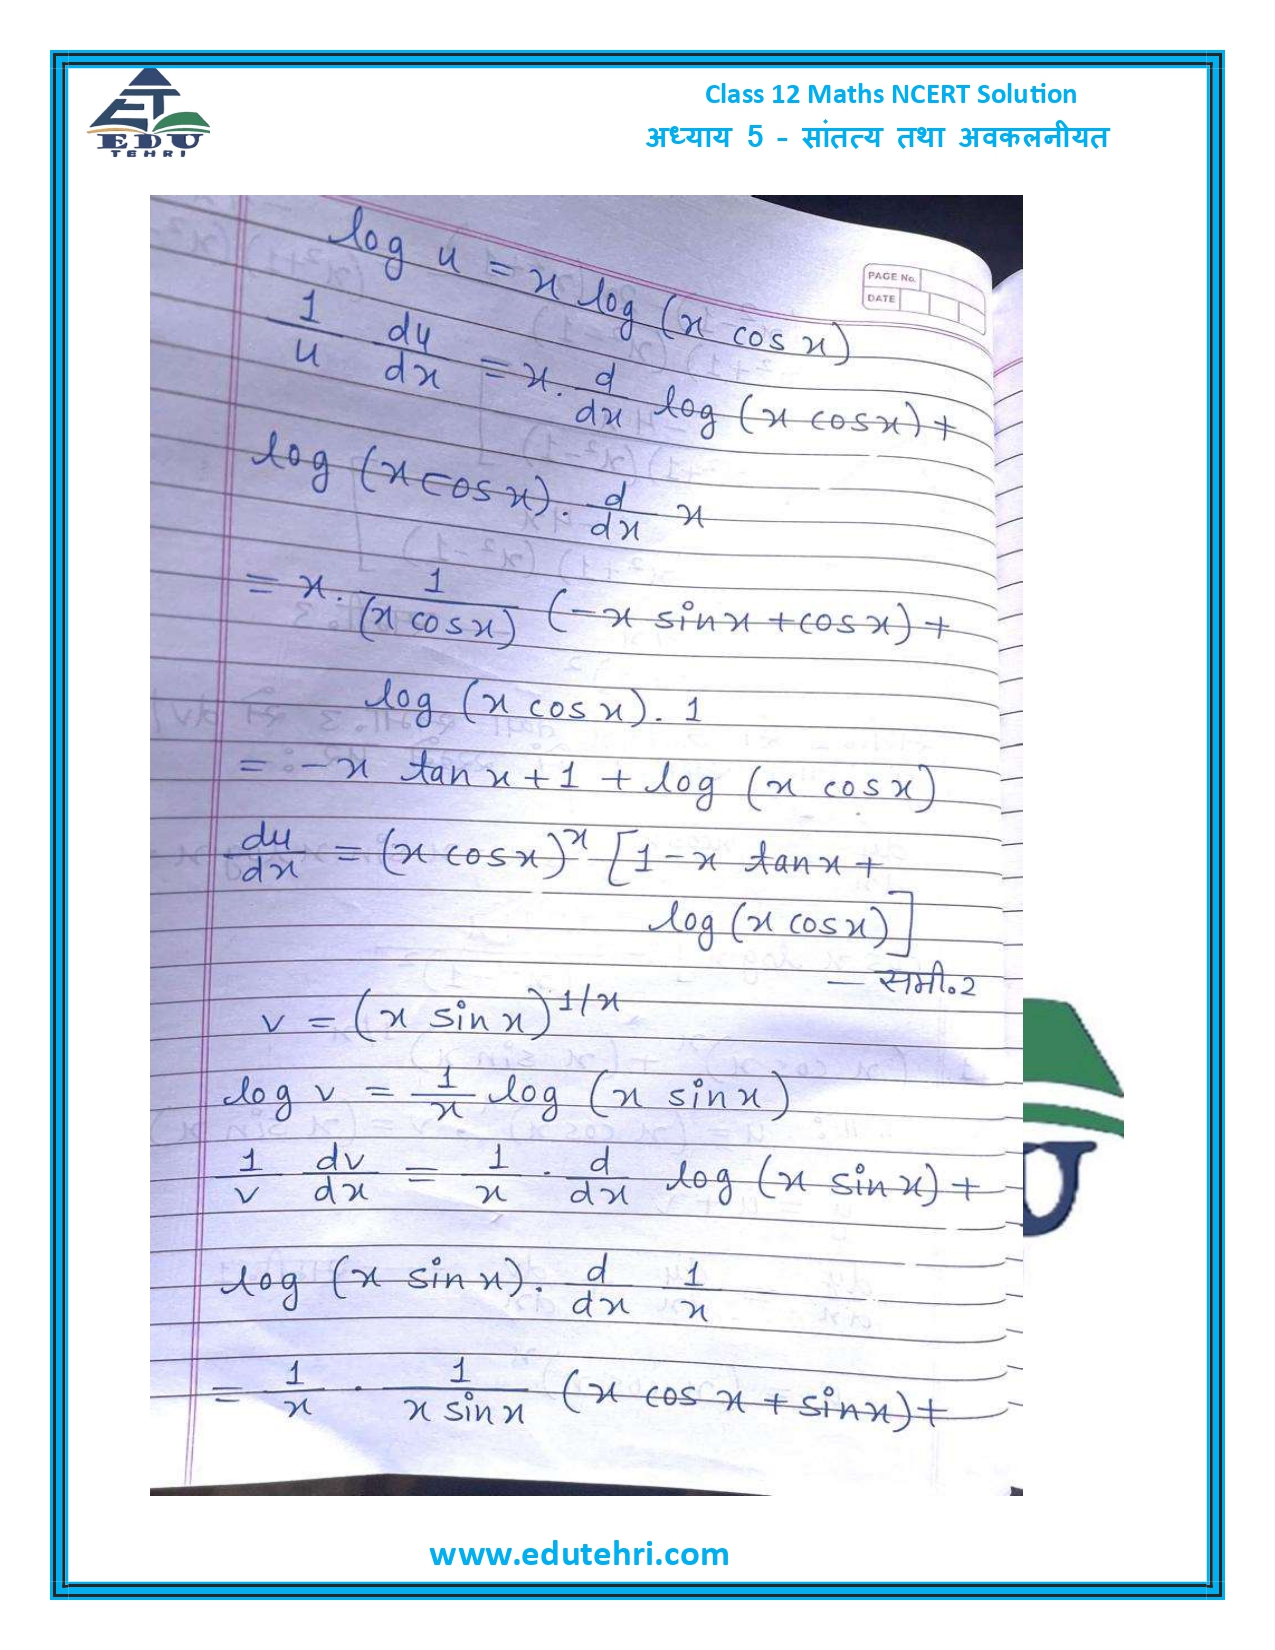 EDU
TEHRI
Class 12 Maths NCERT Solution
अध्याय 5 - सांतत्य तथा अवकलनीयत
PAGE No.
DATE
log u = x log (x cos x)
1/u du/dx = x. d/dx log (x cosx) +
log (x cosx). d/dx x
= x. 1/(x cosx) (-x sinx + cosx) +
log (x cosx). 1
= -x tanx + 1 + log (x cosx)
du/dx = (x cosx)^x [1 - x tanx +
log (x cosx)]
— समी.2
v = (x sinx)^1/x
log v = 1/x log (x sinx)
1/v dv/dx = 1/x . d/dx log (x sinx) +
log (x sinx). d/dx 1/x
= 1/x . 1/x sinx (x cosx + sinx) +
www.edutehri.com